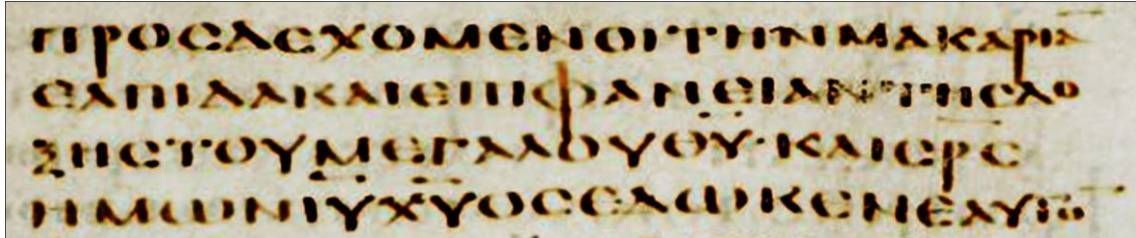 ΠΡΟϹΔΕΧΟΜΕΝΟΙΤΗΝΜΑΚΑΡΙΑ̅
ΕΛΠΙΔΑΚΑΙΕΠΙΦΑΝΕΙΑΝΤΗϹΔΟ
ΞΗϹΤΟΥΜΕΓΑΛΟΥΘ̅Υ̅·ΚΑΙϹ̅Ρ̅Ϲ̅
ΗΜΩΝΙ̅Υ̅Χ̅Υ̅ΟϹΕΔΩΚΕΝΕΑΥΤΟ̅